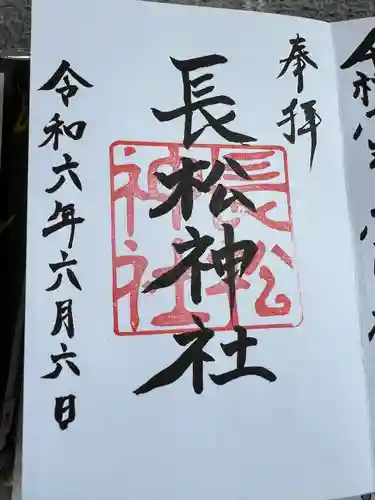 奉拝
長松神社
長松神社
令和六年六月六日